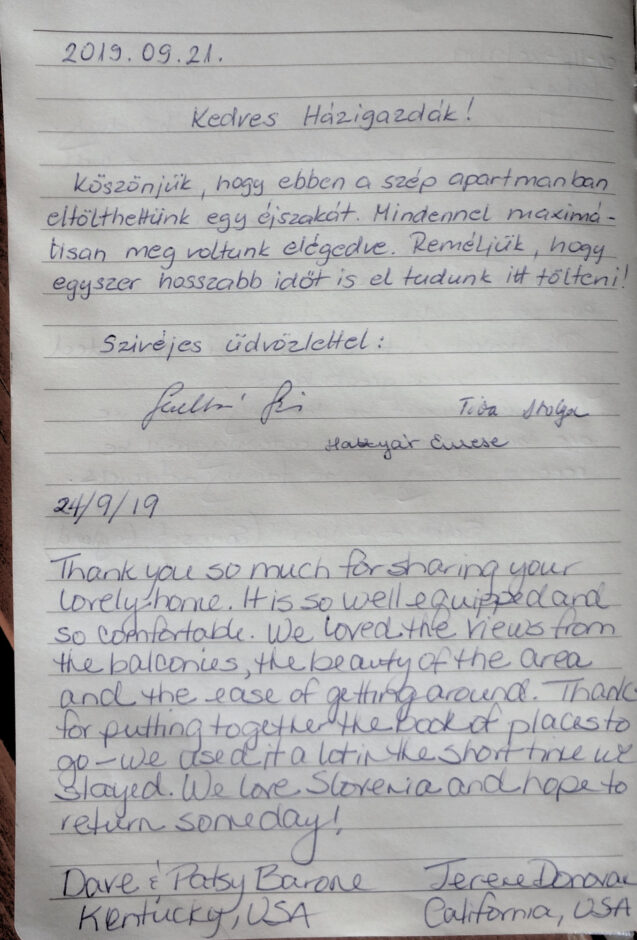 2019.09.21.
Kedves Házigazdák!
Köszönjük, hogy ebben a szép apartmanban
eltölthettünk egy éjszakát. Mindennel maximá-
lisan meg voltunk elégedve. Reméljük, hogy
egyszer hosszabb időt is el tudunk itt tölteni!
Szivéjes üdvözlettel:
Emese
24/9/19
Thank you so much for sharing your
lovely home. It is so well equipped and
so comfortable. We loved the views from
the balconies, the beauty of the area
and the ease of getting around. Thank
for putting together the book of places to
go - we used it a lot in the short time we
stayed. We love Slovenia and hope to
return someday!
Dave & Patsy Barone Jerene Donovan
Kentucky, USA California, USA